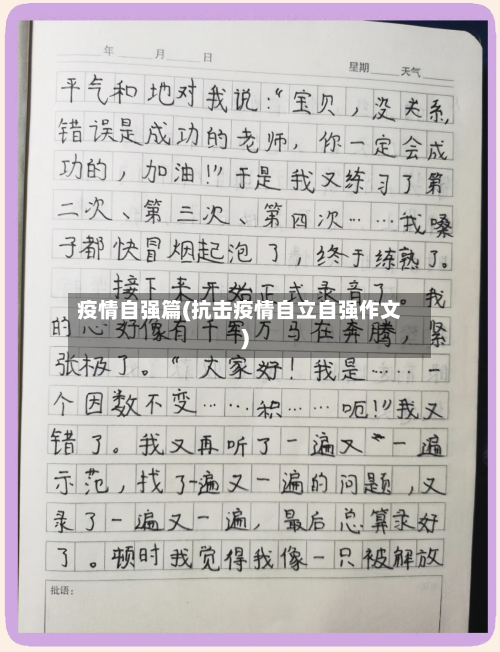 年 月 日
星期 天气
平气和地对我说：“宝贝，没关系，
错误是成功的老师，你一定会成
功的，加油！”于是我又练习了第
二次、第三次、第四次……我嗓
子都快冒烟起泡了，终于练熟了。
接下来开始正式录音了。我
疫情自强篇(抗击疫情自立自强作文
)
的心好像有千军万马在奔腾，紧
张极了。“大家好！我是……一
个因数不变……积……呃！”我又
错了。我又再听了一遍又一遍
示范，找了一遍又一遍的问题，又
录了一遍又一遍，最后总算录好
了。顿时我觉得我像一只被解放
批语：